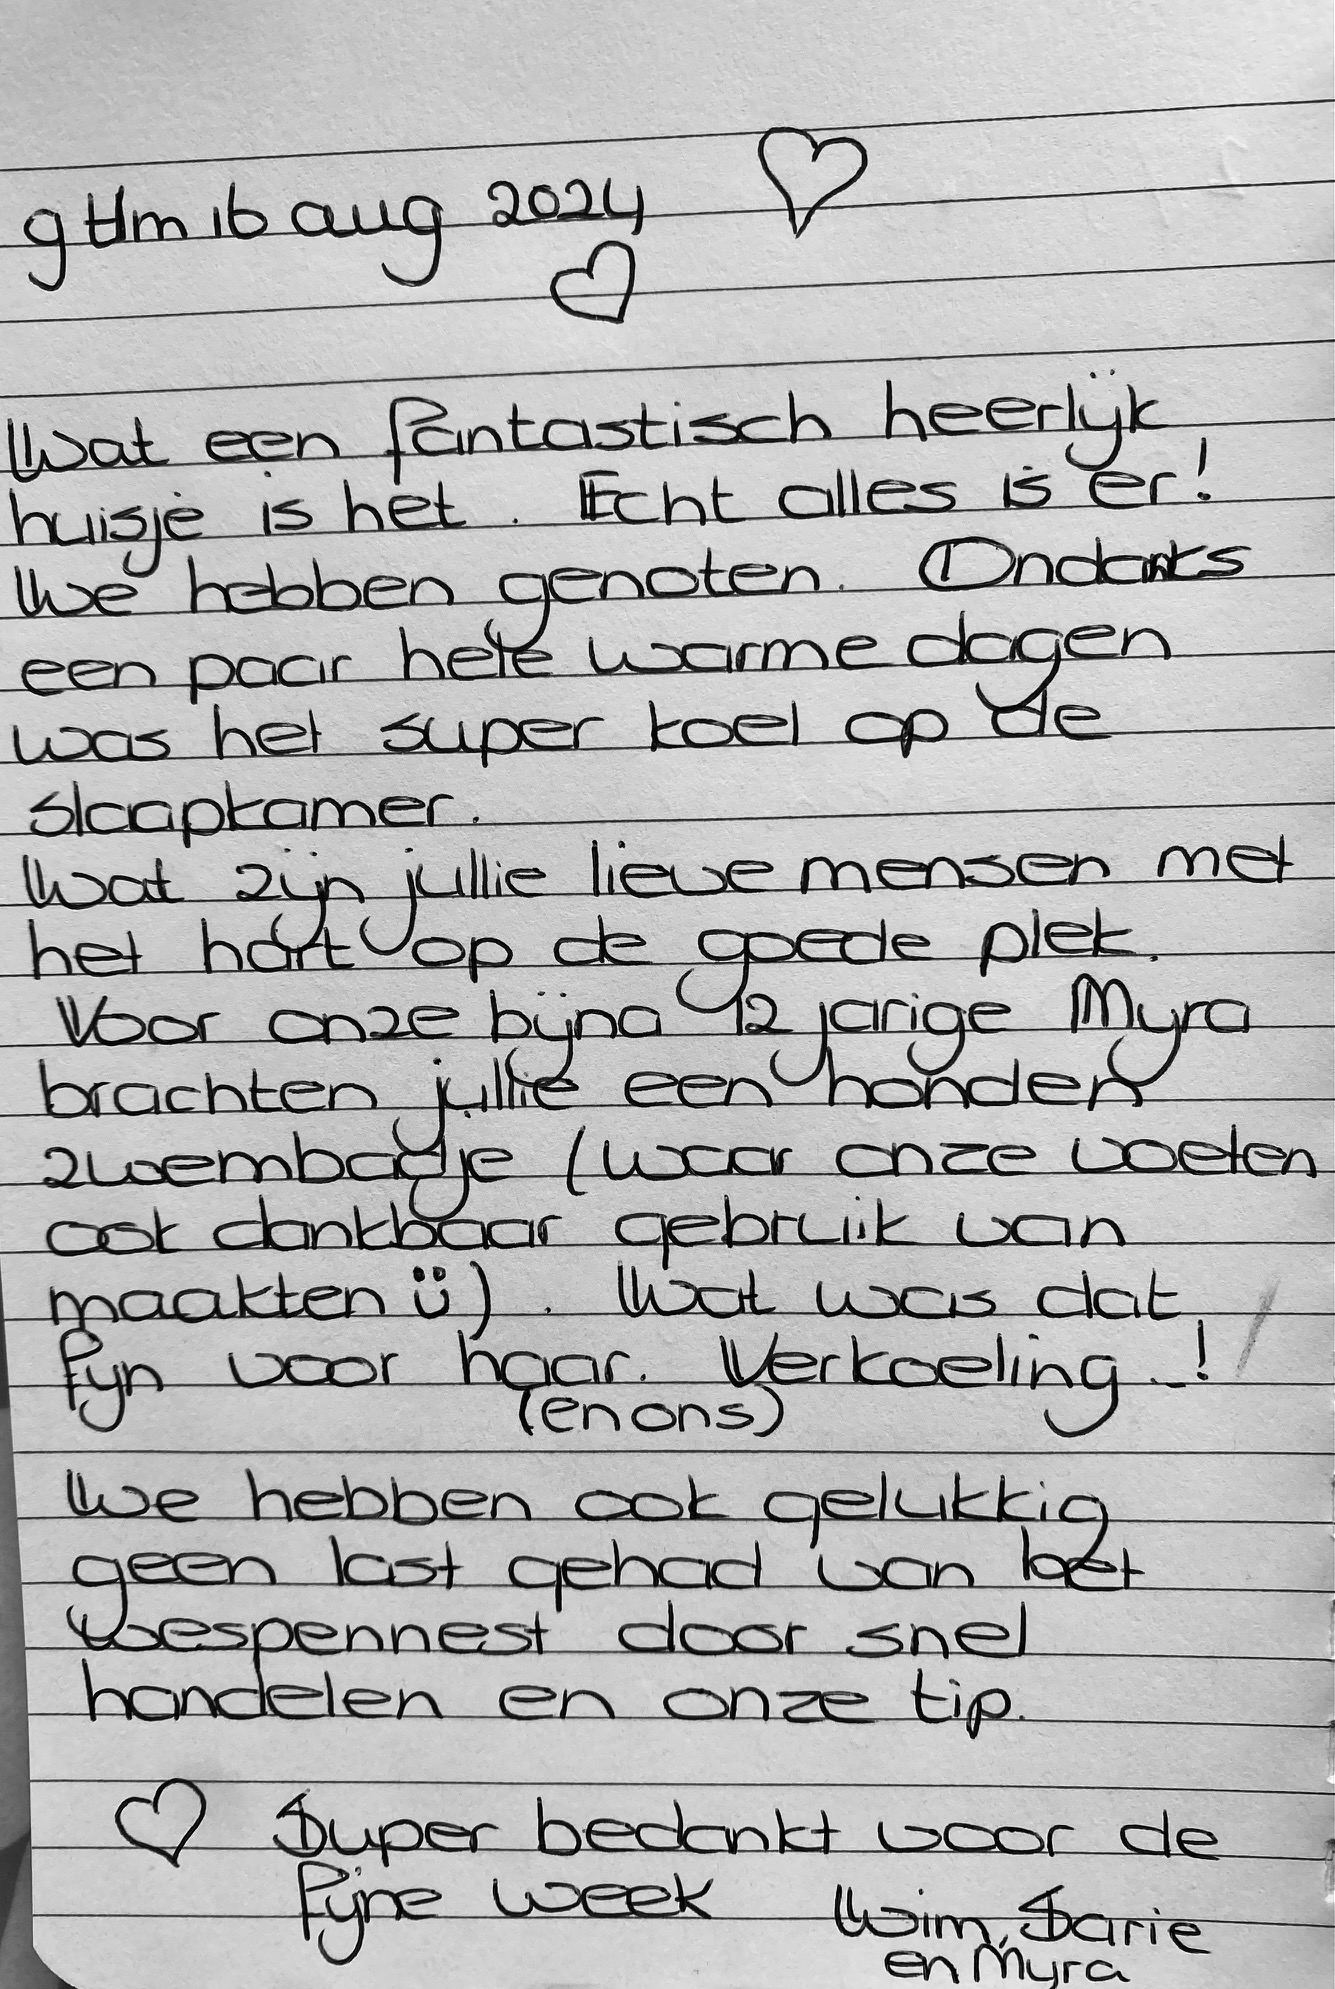 9 t/m 16 aug 2024
Wat een fantastisch heerlijk
huisje is het. Echt alles is er!
We hebben genoten. Ondanks
een paar hele warme dagen
was het super koel op de
slaapkamer.
Wat zijn jullie lieve mensen met
het hart op de goede plek.
Voor onze bijna 12 jarige Myra
brachten jullie een honden
zwembadje (waar onze voeten
ook dankbaar gebruik van
maakten ü). Wat was dat
fijn voor haar. Verkoeling..!
(en ons)
We hebben ook gelukkig
geen last gehad van het
wespennest door snel
handelen en onze tip.
Super bedankt voor de
fijne week
Wim, Sarie
en Myra